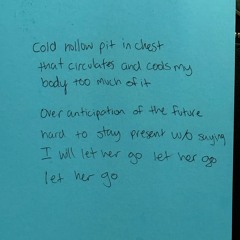 Cold hollow pit in chest
that circulates and cools my
body too much of it
Over anticipation of the future
hard to stay present w/o saying
I will let her go let her go
let her go